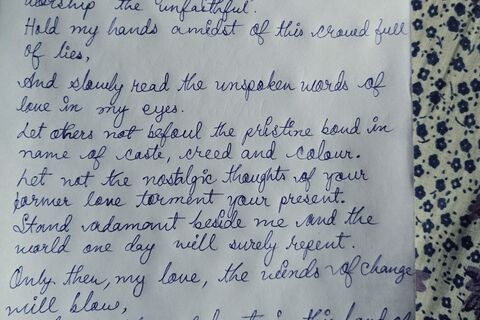 worship the unfaithful.
Hold my hands amidst of this crowd full
of lies,
And slowly read the unspoken words of
love in my eyes.
Let others not befoul the pristine bond in
name of caste, creed and colour.
Let not the nostalgic thoughts of your
former love torment your present.
Stand adamant beside me and the
world one day will surely repent.
Only then, my love, the winds of change
will blow,